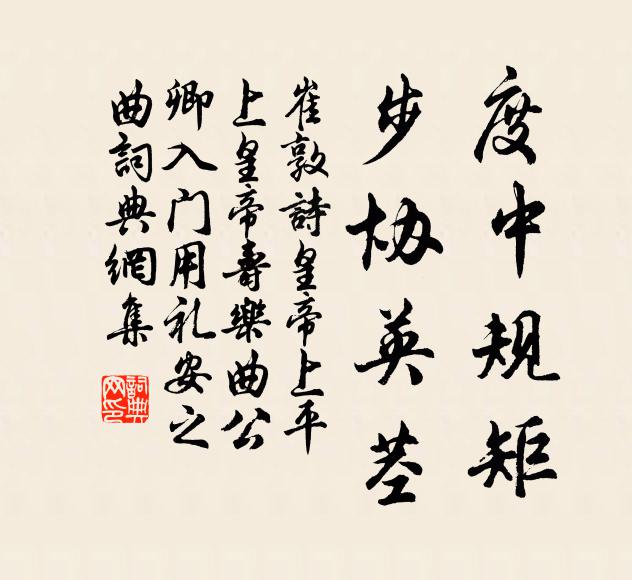 度中規矩
步協英莖
崔敦詩皇帝上平
上皇帝壽樂曲公
卿入門用礼安之
曲詞典網集
詞典網印